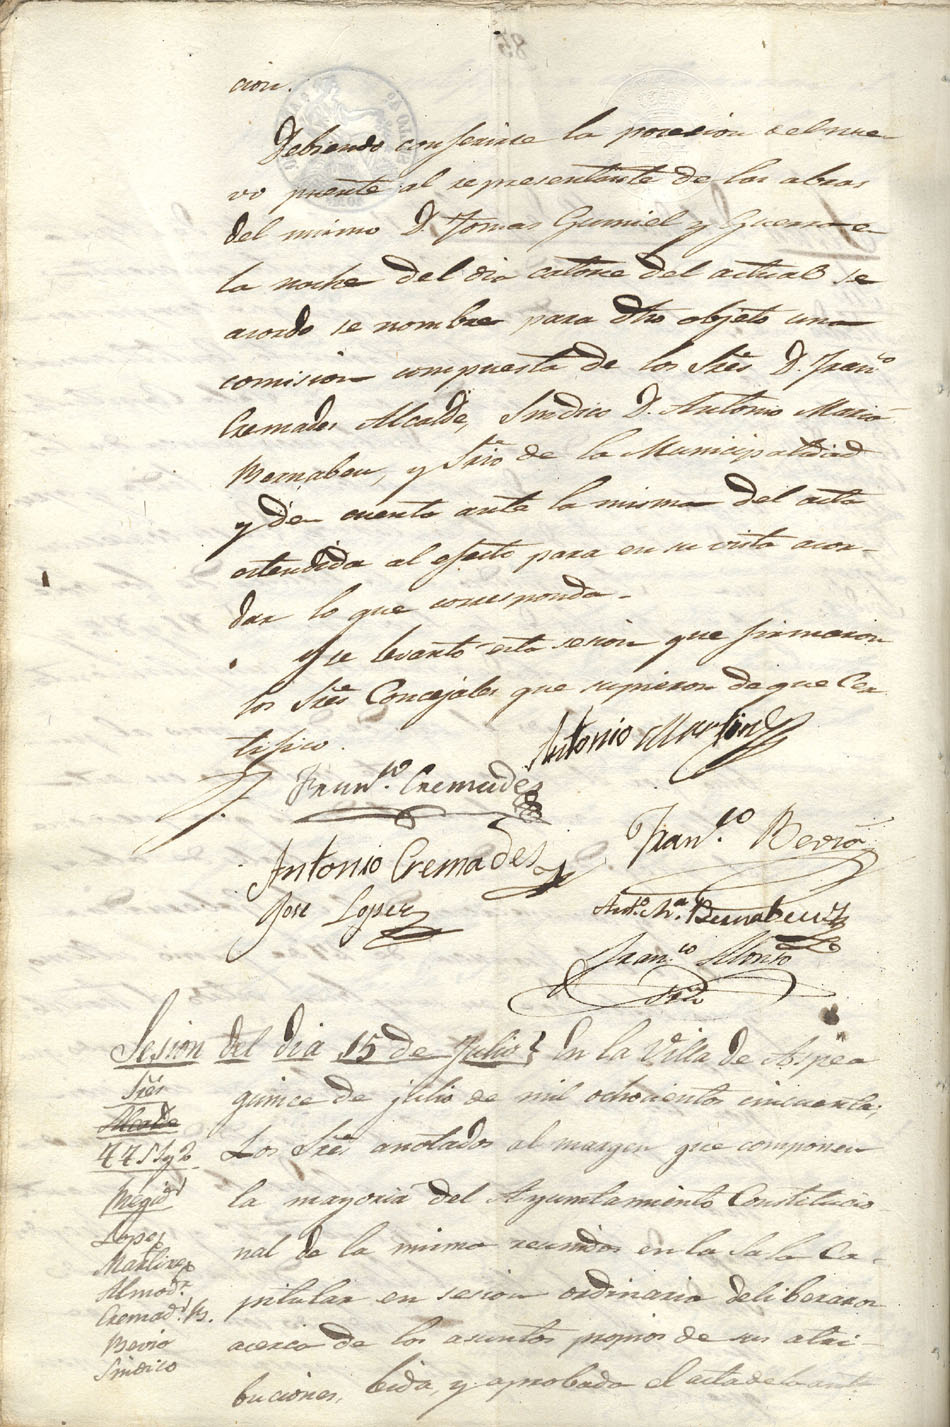 cion.
Debiendo conferirse la posesion del nue-
vo puente al representante de las obras
del mismo D. Tomas Gumiel y Guerra en
la noche del dia catorce del actual se
acordo se nombre para dho objeto una
comision compuesta de los Sres D. Franco
Cremades Alcalde, Sindico D. Antonio Maria
Bernabeu, y Srio de la Municipalidad
y de cuenta ante la misma del acta
estendida al efecto para en su vista acor-
dar lo que corresponda.
Y se levantó esta sesion que firmaron
los Sres Concejales que supieron de que Cer
tifico.
Antonio Martinez
Franco. Cremades
Antonio Cremades
Franco. Bevia
Jose Lopez
Anto. Ma. Bernabeu
Franco
Srio
Sesion del dia 15 de Julio En la Villa de Aspe a
Sres
quince de julio de mil ochocientos cincuenta:
Alcalde
Los Sres anotados al margen que componen
Regid
la mayoria del Ayuntamiento Constitucio-
Lopez
nal de la misma reunidos en la Sala Ca-
Martinez
Almodr
pitular en sesion ordinaria deliberaron
Cremads B.
Bevia
acerca de los asuntos propios de sus atri-
Sindico
buciones. Leida, y aprobada el acta de la ante